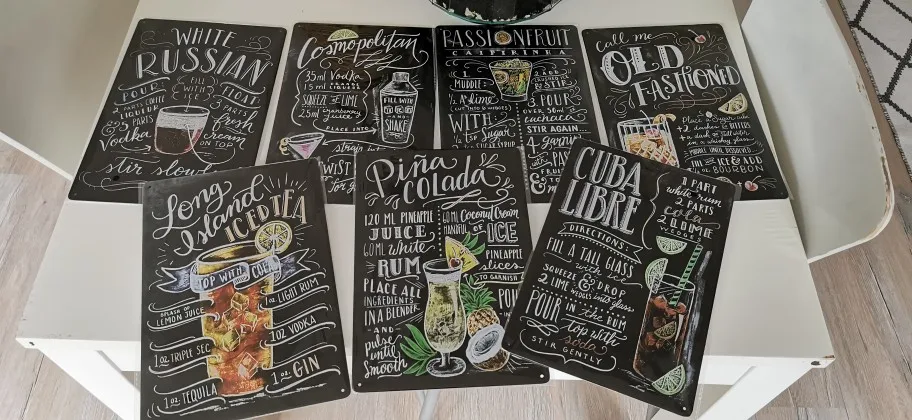 WHITE
RUSSIAN
POUR
FILL
WITH
ICE
FLOAT
PARTS COFFEE
LIQUEUR
&
PARTS
Vodka
3 PARTS
fresh
cream
ON TOP
stir slow
Cosmopolitan
35ml Vodka
15ml
SQUEEZE OF LIME
25ml Cranberry
juice
PLACE INTO
FILL WITH
ICE
AND
SHAKE
Strain
TWIST
PASSIONFRUIT
CAIPIRINHA
1.
MUDDLE
1/2 A lime
WITH
1 tsp Sugar
2. ADD
& STIR
3. POUR
OVER 50ml
cachaca
STIR AGAIN...
4. garn
WITH
&
Call me
OLD
FASHIONED
Place a Sugar cube
+2 dashes of BITTERS
in a whiskey glass
MUDDLE UNTIL DISSOLVED
FILL WITH ICE & ADD
BOURBON
Long
Island
ICED TEA
TOP WITH COLA
SPLASH OF
LEMON JUICE
1oz LIGHT RUM
1oz VODKA
1oz TRIPLE SEC
1oz GIN
1oz TEQUILA
Piña
COLADA
120 ML PINEAPPLE
JUICE
60ML White
RUM
60ML Coconut Cream
HANDFUL OF ICE
PLACE ALL
INGREDIENTS
IN A BLENDER
-AND-
pulse
until
Smooth
PINEAPPLE
slices
TO GARNISH
POU
CUBA
LIBRE
1 PART
white rum
2 PARTS
cola
2 LIME
WEDGES
DIRECTIONS:
FILL A TALL GLASS
with ice
SQUEEZE & DROP
2 LIME WEDGES into glass
POUR in the RUM
top with
soda
STIR GENTLY